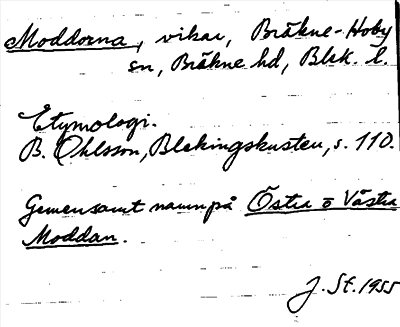 Moddorna, vikar, Bräkne-Hoby
sn, Bräkne hd, Blek. l.
Etymologi.
B. Ohlsson, Blekingskusten, s. 110.
Gemensamt namn på Östra o Västra
Moddan.
J. St. 1955